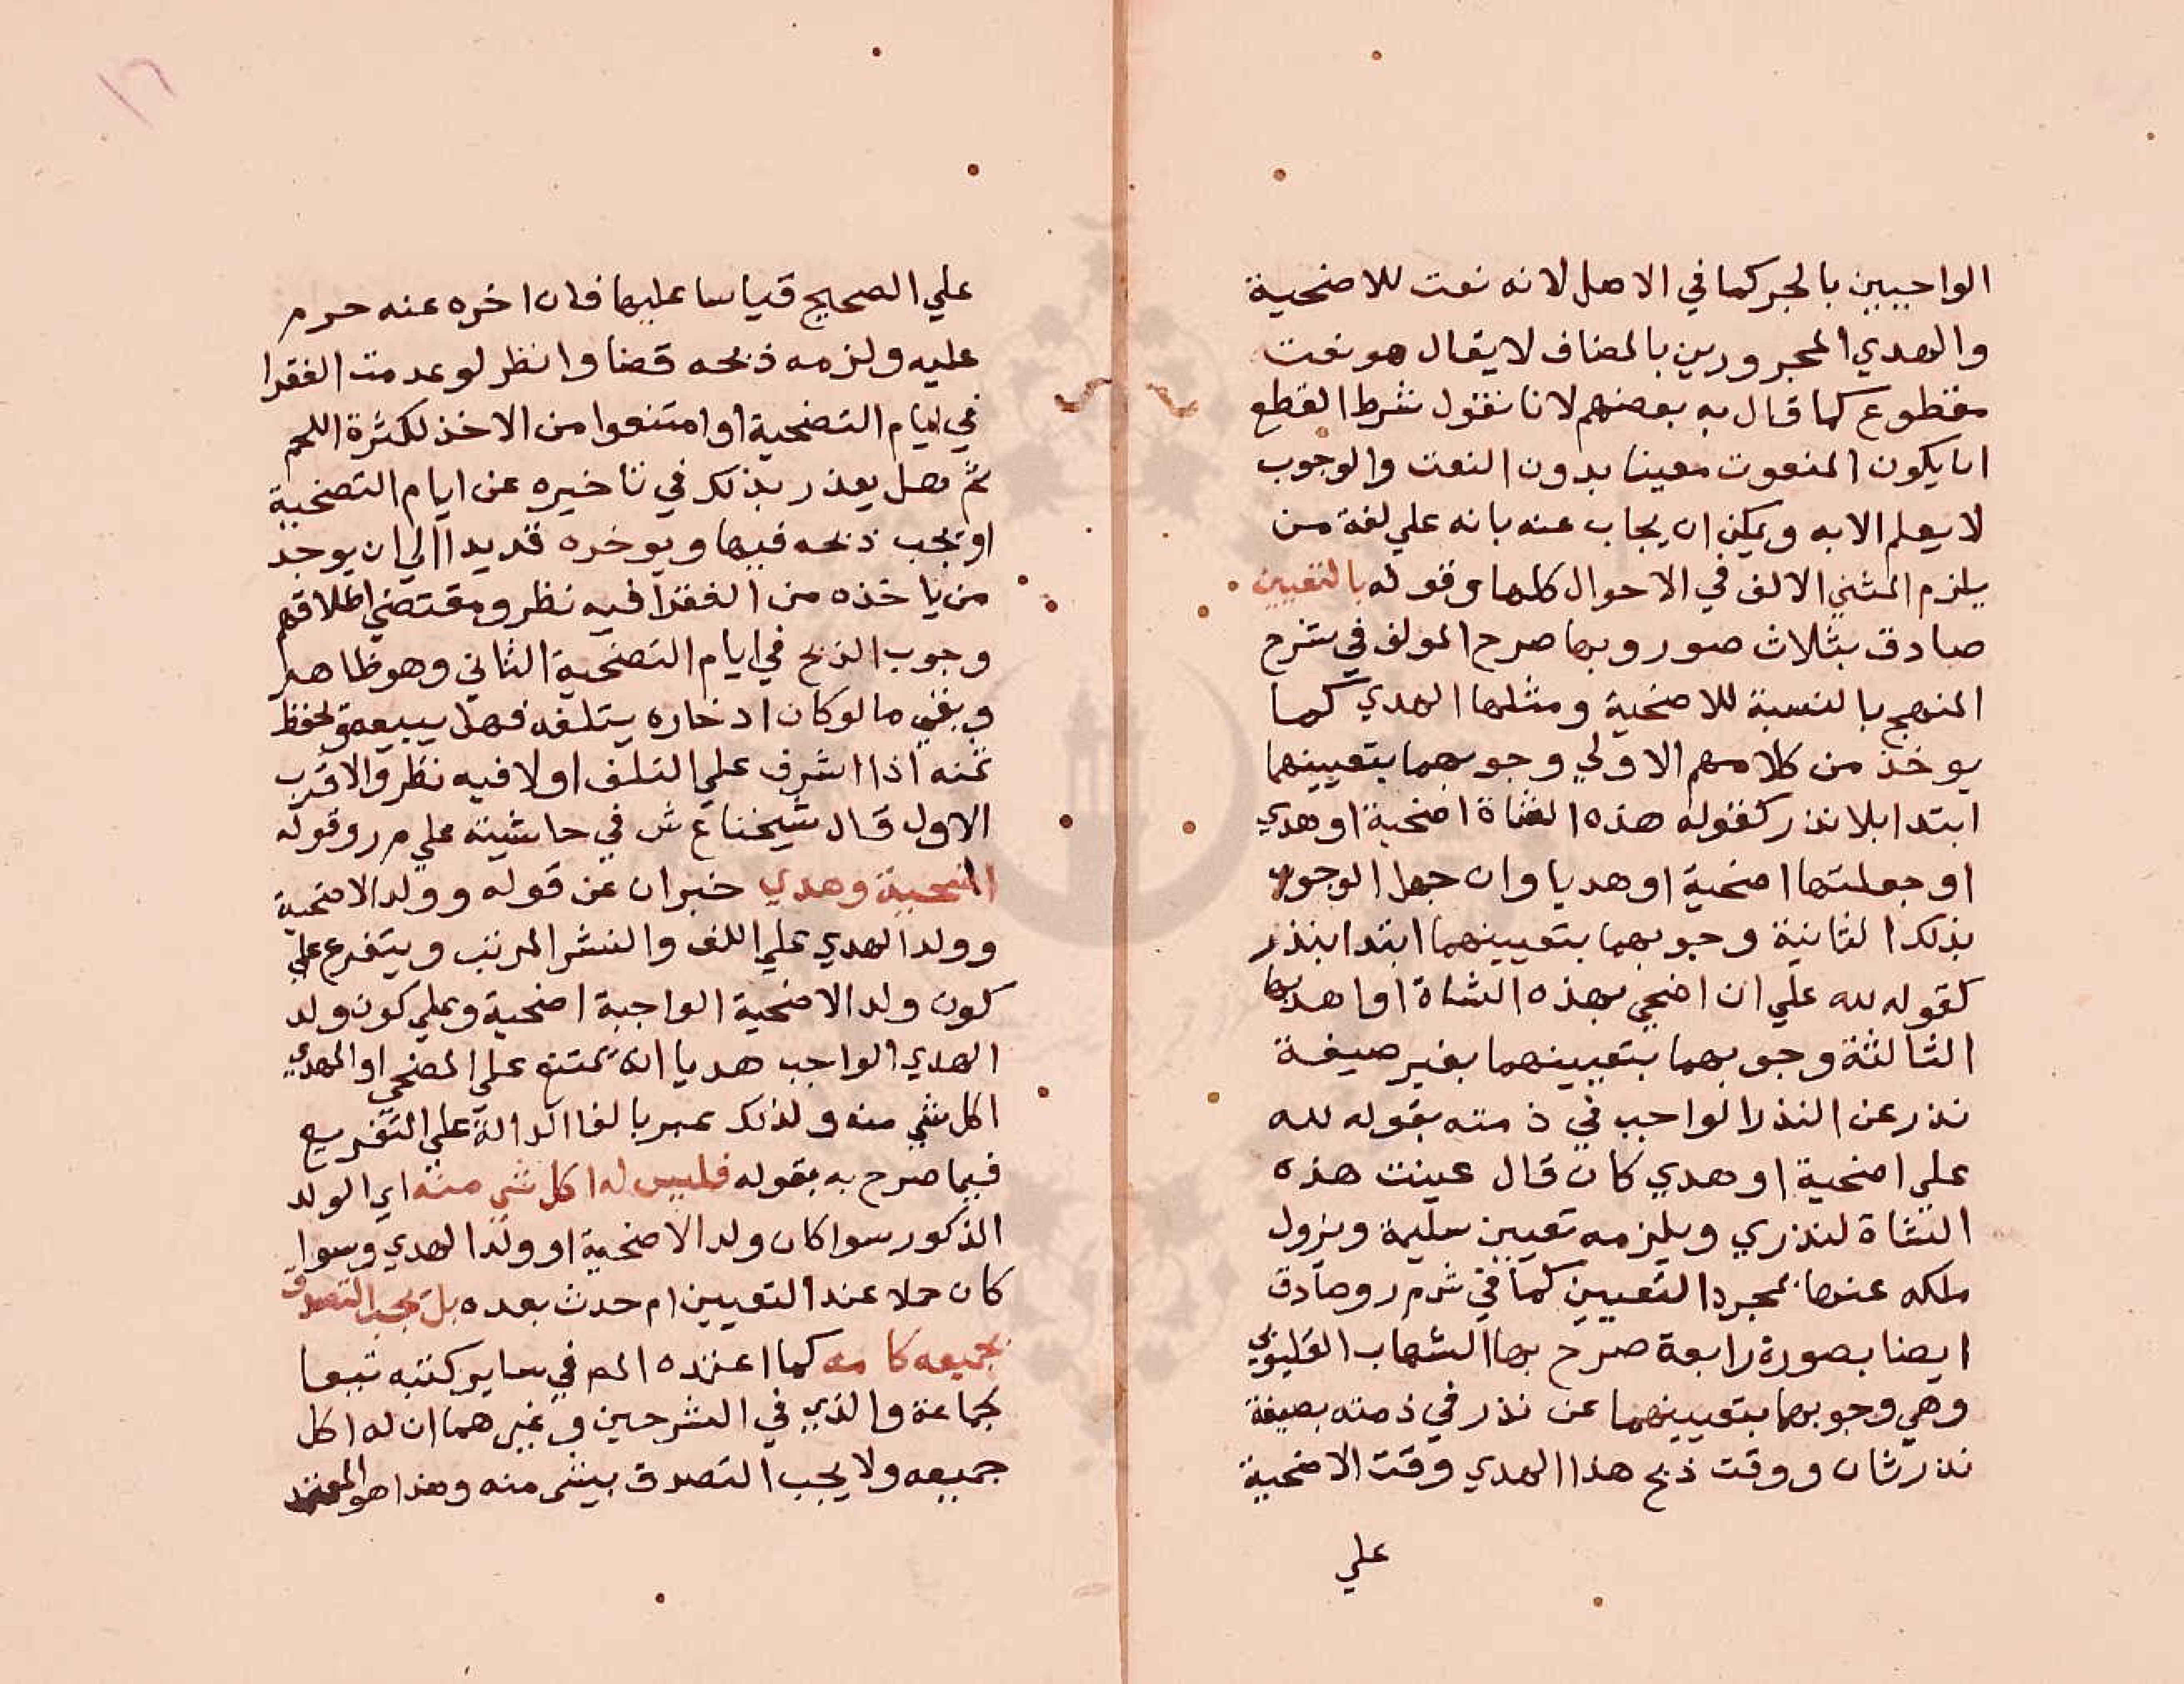 الواجبين بالجر كما في الاصل لانه نعت للاضحية
والهدي المجرورين بالمضاف لا يقال هو نعت
مقطوع كما قال به بعضهم لانا نقول شرط القطع
ان يكون المنعوت معينا بدون النعت والوجوب
لا يعلم الا به ويمكن ان يجاب عنه بانه علي لغة من
يلزم المثني الالف في الاحوال كلها وقوله بالتعيين
صادق بثلاث صور وبها صرح المولف في شرح
المنهج بالنسبة للاضحية ومثلها الهدي كما
يوخذ من كلامهم الاولي وجوبهما بتعيينهما
ابتدا بلا نذر كقوله هذه الشاة اضحية او هدي
او جعلتها اضحية او هديا وان جهل الوجوب
بذلك الثانية وجوبهما بتعيينهما ابتدا بنذر
كقوله لله علي ان اضحي بهذه الشاة او اهديها
الثالثة وجوبهما بتعيينهما بغير صيغة
نذر عن النذر الواجب في ذمته بقوله لله
علي اضحية او هدي كان قال عينت هذه
الشاة لنذري ويلزمه تعيين سليمة ويزول
ملكه عنها بمجرد التعيين كما في شرم ر وصادق
ايضا بصورة رابعة صرح بها الشهاب القليوبي
وهي وجوبهما بتعيينهما عن نذر في ذمته بصيغة
نذر ثان ووقت ذبح هذا الهدي وقت الاضحية
علي
علي الصحيح قياسا عليها فان اخره عنه حرم
عليه ولزمه ذبحه قضا وانظر لو عدمت الفقرا
في ايام التضحية او امتنعوا من الاخذ لكثرة اللحم
ثم هل يعذر بذلك في تاخيره عن ايام التضحية
او يجب ذبحه فيها ويوخره قديدا الي ان يوجد
من ياخذه من الفقرا فيه نظر ومقتضي اطلاقهم
وجوب الذبح في ايام التضحية الثاني وهو ظاهر
وبقي ما لو كان ادخاره يتلفه فهل يبيعه ويحفظ
ثمنه اذا اشرف علي التلف او لا فيه نظر والاقرب
الاول قال شيخنا ع ش في حاشيته علي م ر وقوله
اضحية وهدي خبران عن قوله وولد الاضحية
وولد الهدي علي اللف والنشر المرتب ويتفرع علي
كون ولد الاضحية الواجبة اضحية وعلي كون ولد
الهدي الواجب هديا انه يمتنع علي المضحي او المهدي
اكل شي منه ولذلك عبر بالفا الدالة علي التفريع
فيما صرح به بقوله فليس له اكل شي منه اي الولد
المذكور سوا كان ولد الاضحية او ولد الهدي وسوا
كان حملا عند التعيين ام حدث بعده بل يجب التصدق
بجميعه كامه كما اعتمده الم في ساير كتبه تبعا
لجماعة والذي في الشرحين وغيرهما ان له اكل
جميعه ولا يجب التصدق بشي منه وهذا هو المعتمد